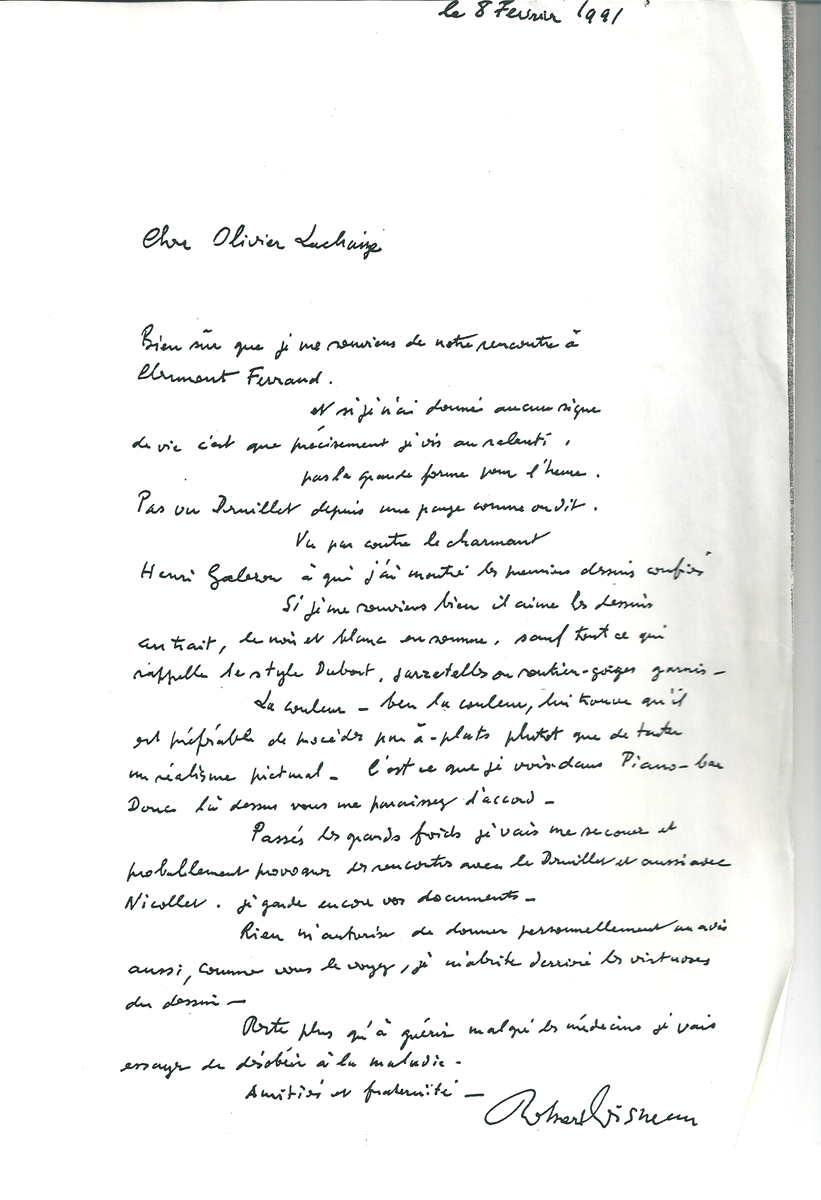 le 8 Fevrier 1991
Cher Olivier Lachaize
Bien sûr que je me souviens de notre rencontre à
Clermont Ferrand.
et si je n'ai donné aucun signe
de vie c'est que précisement je vis au ralenti,
pas la grande forme pour l'heure.
Pas vu Druillet depuis une paye comme on dit.
Vu par contre le charmant
Henri Galeron à qui j'ai montré les premiers dessins confiés
Si je me souviens bien il aime les dessins
au trait, le noir et blanc en somme. sauf tout ce qui
rappelle le style Dubout, jarretelles ou soutien-gorges garnis –
La couleur – ben la couleur, lui trouve qu'il
est préférable de procéder par à-plats plutot que de tenter
un réalisme pictural – C'est ce que je vois dans Piano-bar
Donc là dessus vous me paraissez d'accord –
Passés les grands froids je vais me secouer et
probablement provoquer des rencontres avec le Druillet et aussi avec
Nicollet. je garde encore vos documents –
Rien m'autorise de donner personnellement un avis
aussi, comme vous le voyez, je m'abrite derrière les virtuoses
du dessin –
Reste plus qu'à guérir malgré les médecins je vais
essayer de désobéir à la maladie –
Amitiés et fraternité –
Robert Doisneau